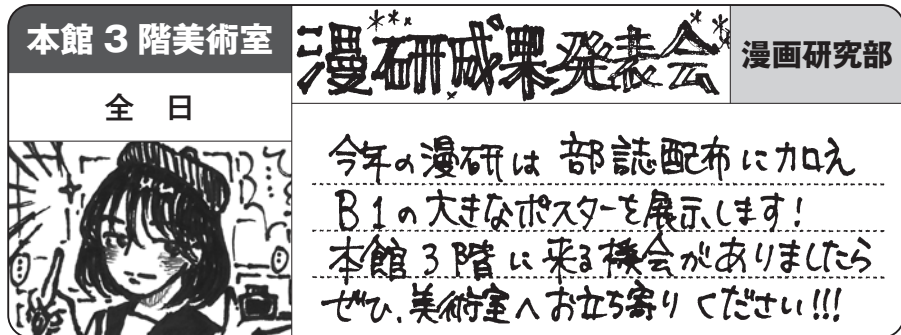 本館3階美術室
全日
漫研成果発表会
漫画研究部
今年の漫研は 部誌配布に加え
B1の大きなポスターを展示します!
本館3階に来る機会がありましたら
ぜひ、美術室へお立ち寄りください!!!